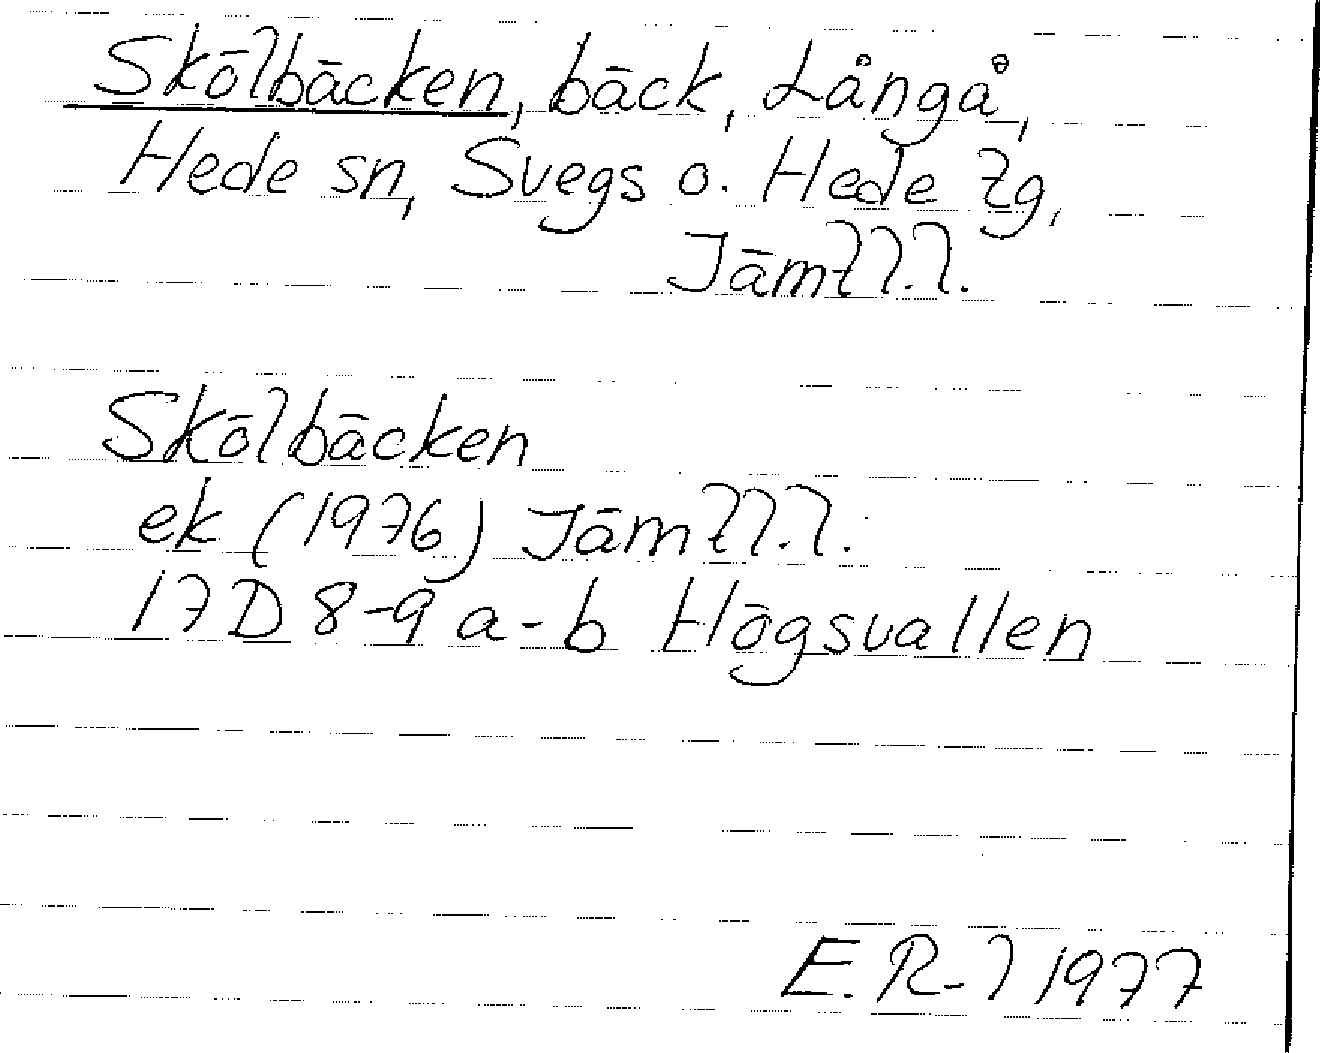 Skölbäcken, bäck, Långå,
Hede sn, Svegs o. Hede tg,
Jämtl.l.
Skölbäcken
ek (1976) Jämtl.l.
17D 8-9 a-b Högsvallen
E.R-l 1977